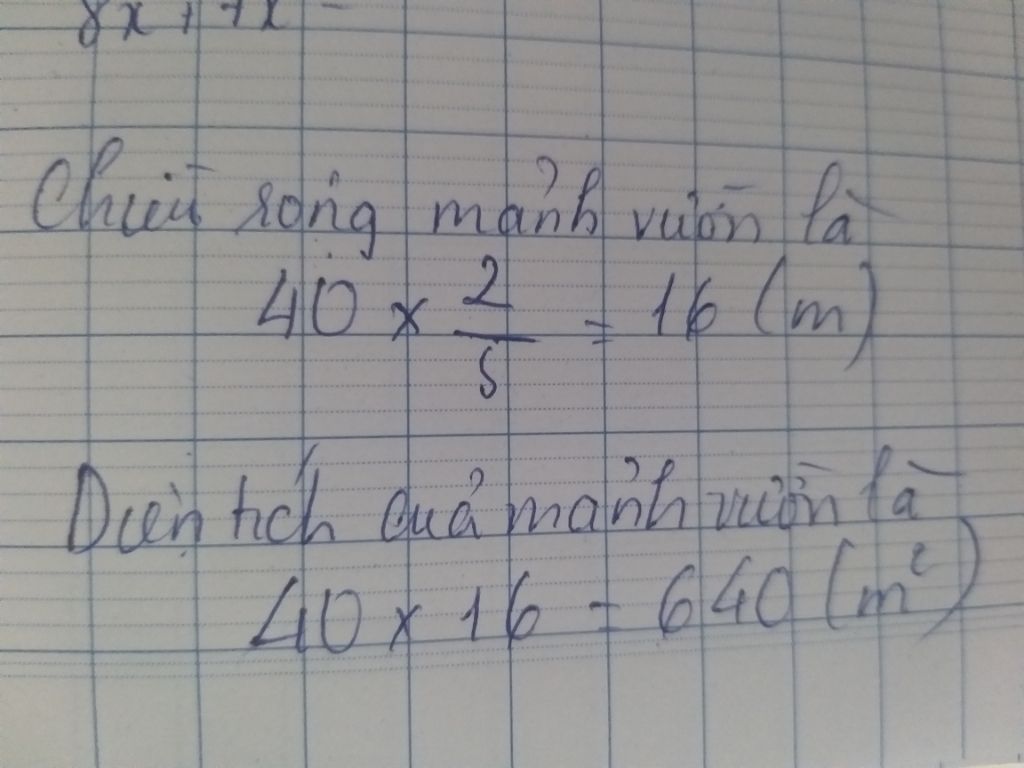 8x + 7x =
Chiều rộng mảnh vườn là
40 x 2/5 = 16 (m)
Diện tích của mảnh vườn là
40 x 16 = 640 (m²)